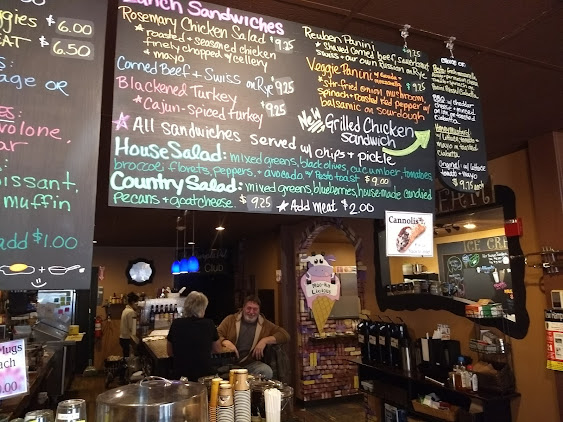 ggies $6.00
EAT $6.50
age or
volone,
ar
issant,
muffin
add $1.00
Mugs
ach
Lunch Sandwiches
Rosemary Chicken Salad $9.25
* roasted + seasoned chicken
finely chopped w/ celery
+ mayo
Corned Beef + Swiss on Rye $9.25
Blackened Turkey $9.25
* Cajun-spiced turkey
Reuben Panini $9.25
* Shaved corned beef, sauerkraut
swiss + our own Russian on Rye
Veggie Panini
* stir-fried onion, mushroom,
spinach + roasted red pepper w/
balsamic on sour-dough
New Grilled Chicken
Sandwich
* All sandwiches served w/ chips + pickle
House Salad: mixed greens, black olives, cucumber, tomatoes
broccoli florets, peppers, + avocado w/ Pesto toast $9.00
Country Salad: mixed greens, blueberries, house-made candied
pecans + goat cheese. $9.25 * Add meat $2.00
BBQ w/ cheddar
Original w/ lettuce
tomato + mayo
$9.75 each
Cannolis
ICE CRE
Club